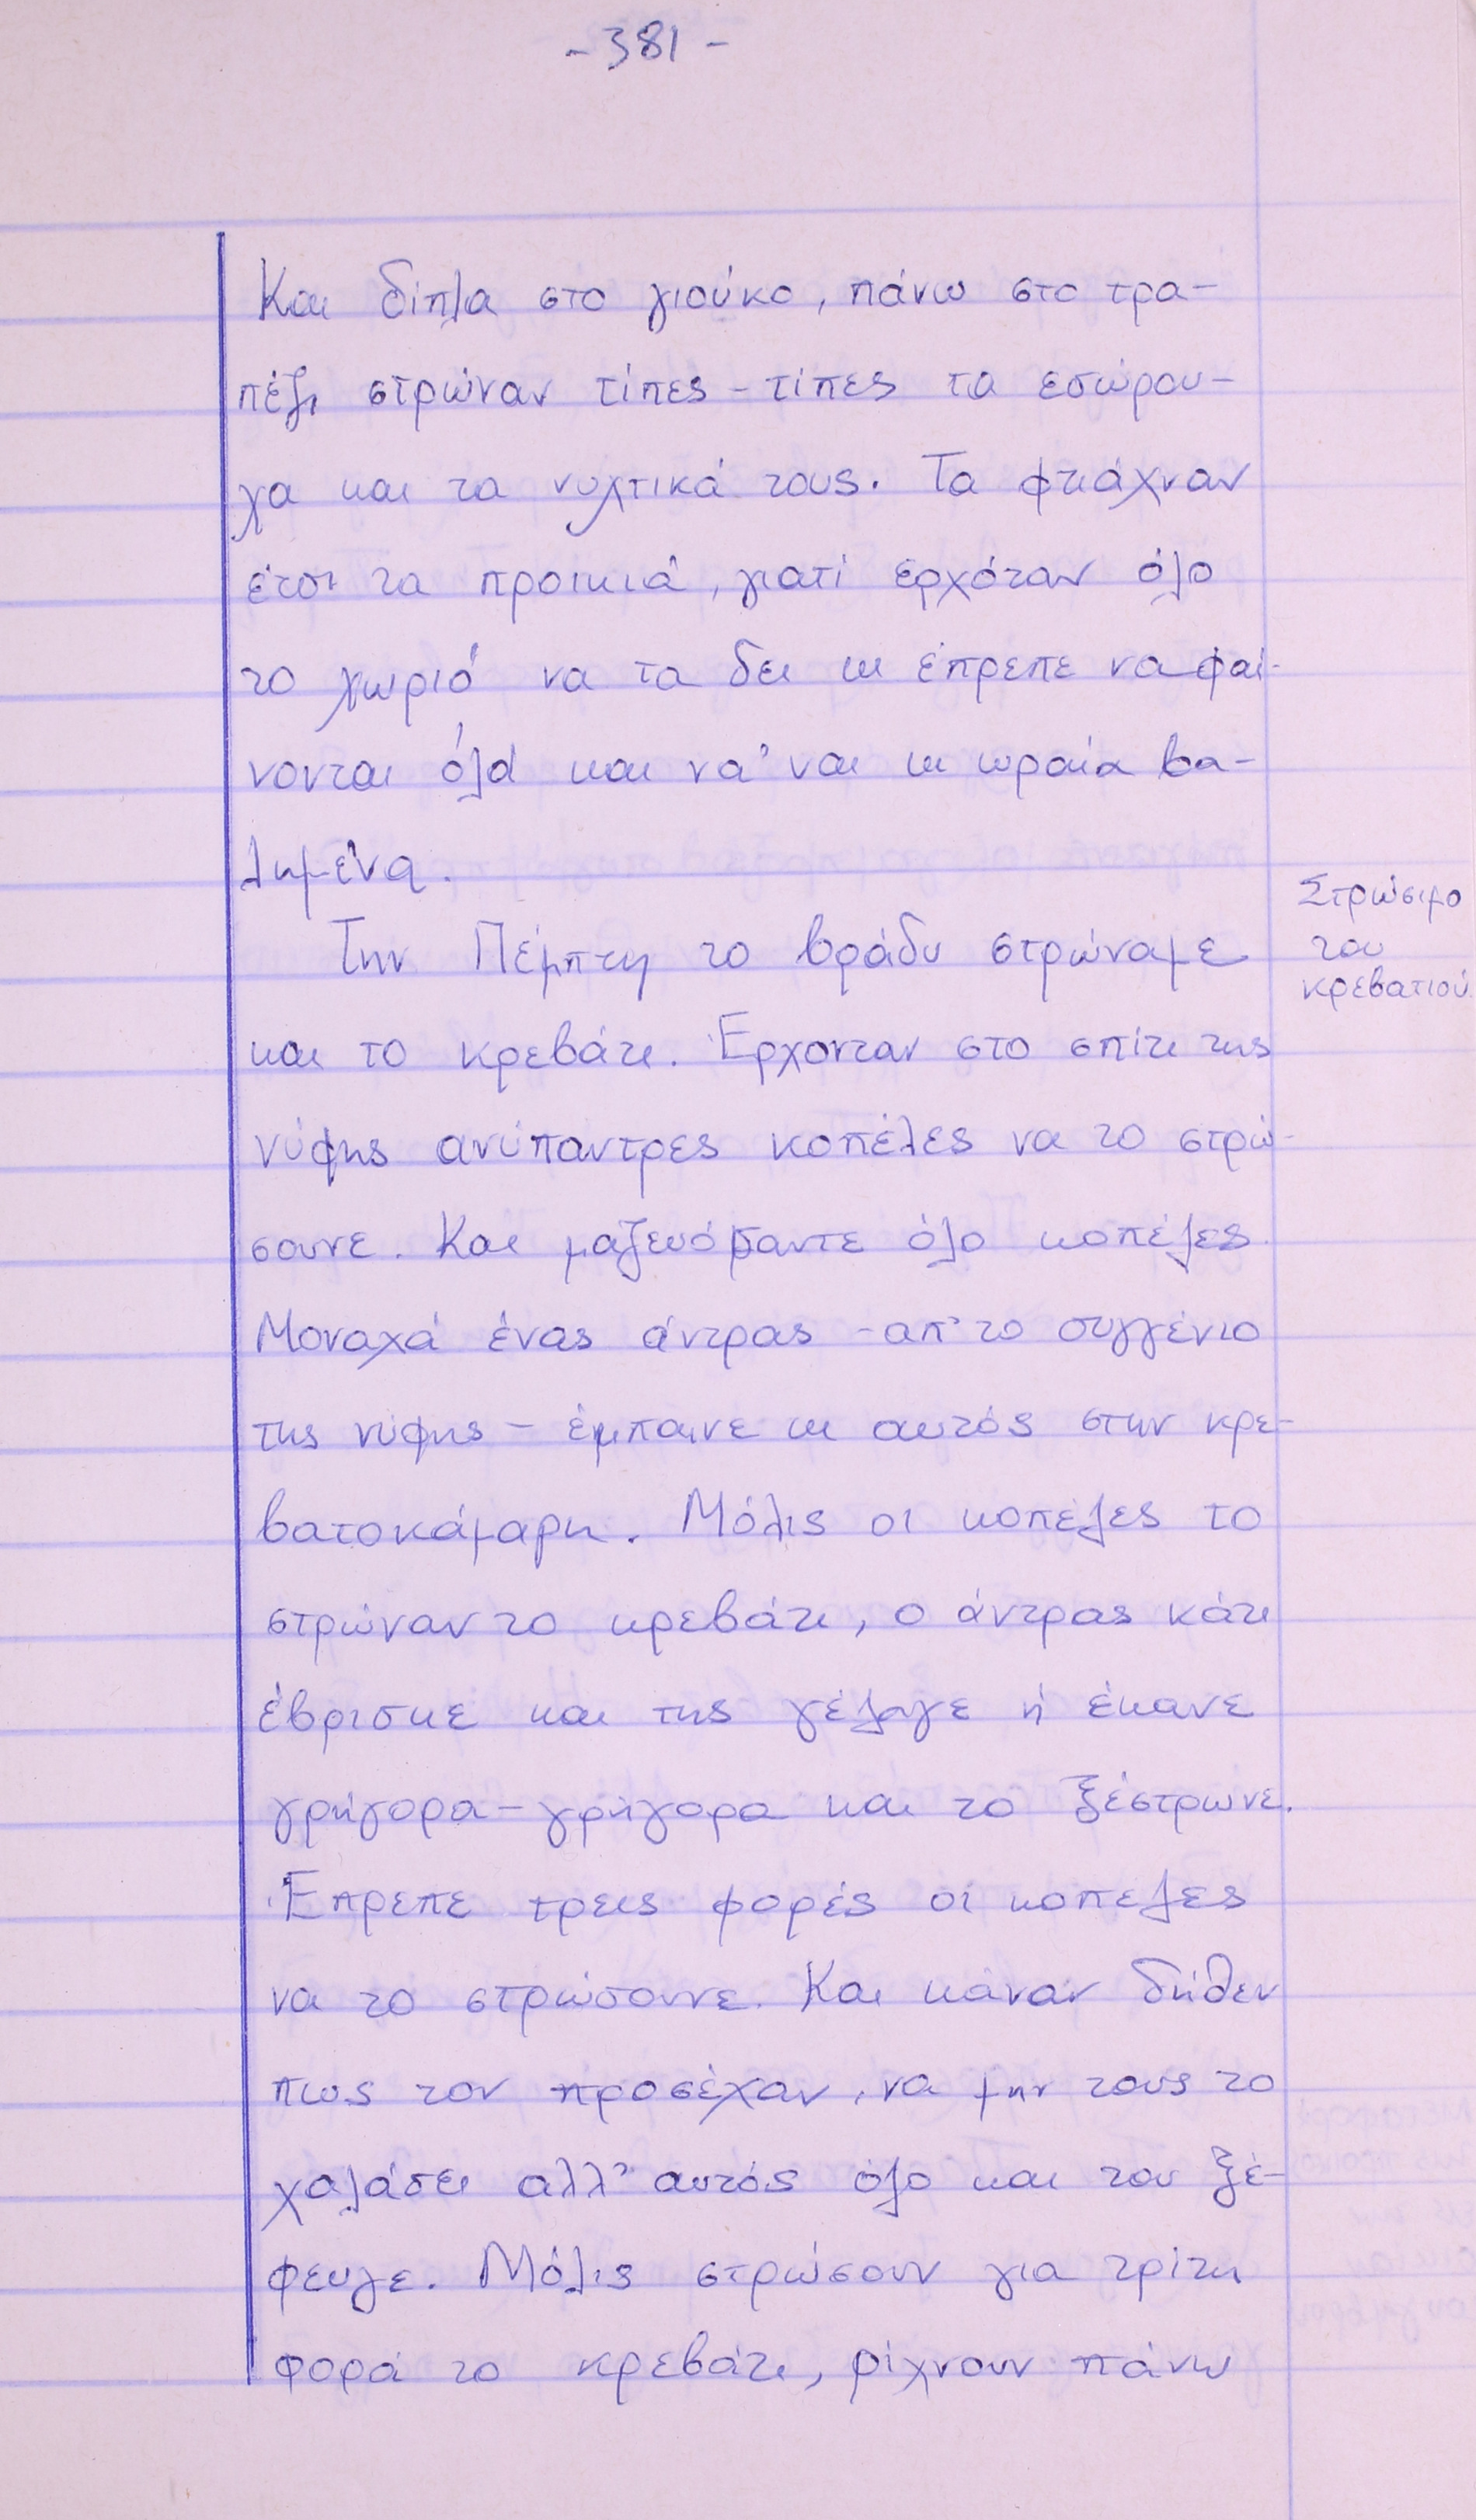 -381-
Και δίπλα στο γιούκο, πάνω στο τρα-
πέζι στρώναν τίπες-τίπες τα εσώρου-
χα και τα νυχτικά τους. Τα φτιάχναν
έτσι τα προικιά, γιατί ερχόταν όλο
το χωριό να τα δει κι έπρεπε να φαί-
νονται όλα και να 'ναι κι ωραία βα-
λημένα.
Την Πέμπτη το βράδυ στρώναμε
Στρώσιμο
του
κρεβατιού.
και το κρεβάτι. Έρχονταν στο σπίτι της
νύφης ανύπαντρες κοπέλες να το στρώ-
σουνε. Και μαζευόσαντε όλο κοπέλες.
Μοναχά ένας άντρας -απ' το συγγένιο
της νύφης- έμπαινε κι αυτός στην κρε-
βατοκάμαρη. Μόλις οι κοπέλες το
στρώναν το κρεβάτι, ο άντρας κάτι
έβρισκε και της γέλαγε ή έκανε
γρήγορα-γρήγορα και το ξέστρωνε.
Έπρεπε τρεις φορές οι κοπέλες
να το στρώσουνε. Και κάναν δήθεν
πως τον προσέχαν, να μην τους το
χαλάσει αλλ' αυτός όλο και του ξέ-
φευγε. Μόλις στρώσουν για τρίτη
φορά το κρεβάτι, ρίχνουν πάνω